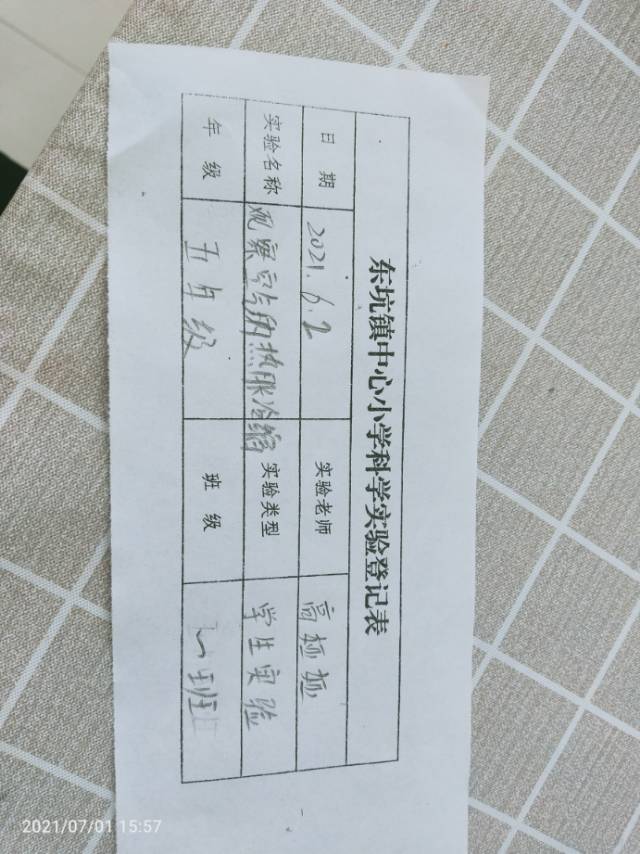 东坑镇中心小学科学实验登记表
日 期 2021.6.2 实验老师 高
实验名称 观察空气的热胀冷缩 实验类型 学生实验
年 级 五年级 班 级 班
2021/07/01 15:57